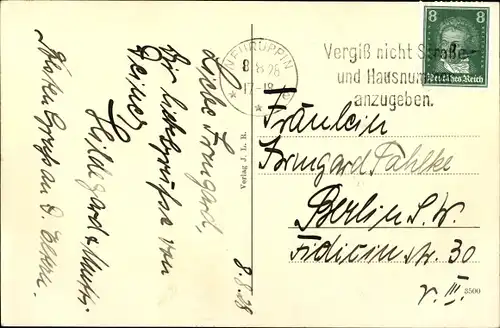 8.8.28
Liebe Irmgard,
Ihr liebe Grüße von
Hildegard & Mutti.
Gruß an d. Eltern.
Verlag J. L. R.
NEURUPPIN
8.8.28
17-18
Vergiß nicht Straße
und Hausnummer
anzugeben.
8 8
Deutsches Reich
Fräulein
Irmgard Pahlke
Berlin S.W.
Fidicinstr. 30
v. III.
3500